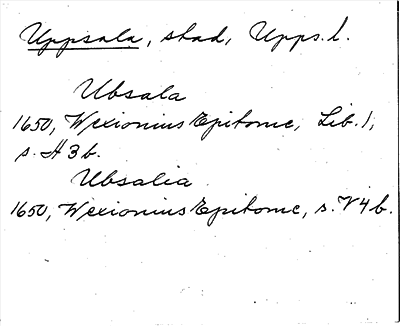 Uppsala, stad, Upps. l.
Ubsala
1650, Wexionius Epitome, Lib. 1,
s. H 3 b.
Ubsalia
1650, Wexionius Epitome, s. V 4 b.